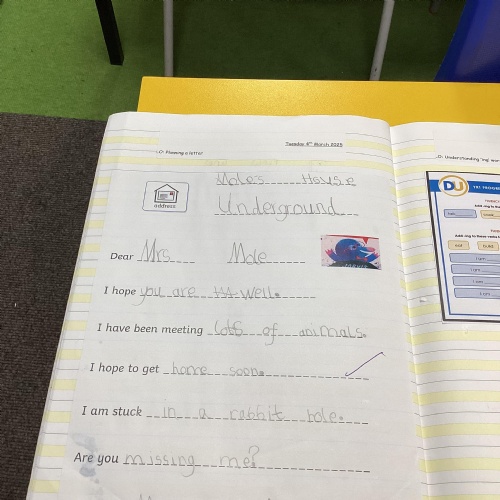 Tuesday 4th March 2025
LO: Planning a letter
Mole's House
address
Underground
Dear Mrs Mole
I hope you are well.
I have been meeting lots of animals.
I hope to get home soon.
I am stuck in a rabbit hole.
Are you missing me?
LO: Understanding 'ing'
DU
I am
I am
I am